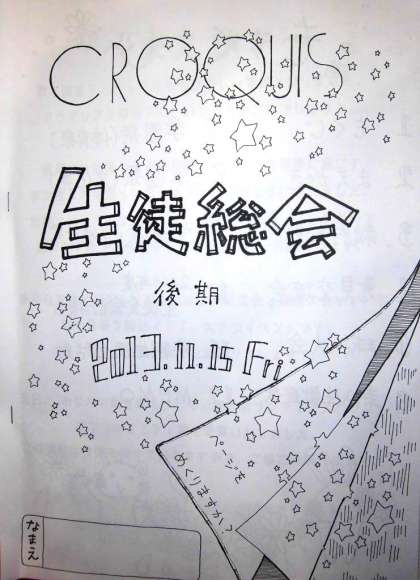 CROQUIS
生徒総会
後期
2013.11.15 Fri
ページを
めくりますか?
なまえ